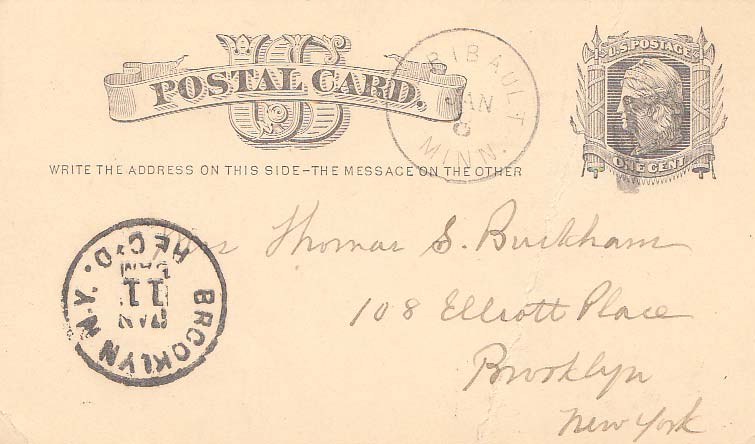 US
POSTAL CARD.
U.S. POSTAGE
ONE CENT
RIBAULT
JAN
6
MINN.
WRITE THE ADDRESS ON THIS SIDE–THE MESSAGE ON THE OTHER
BROOKLYN N.Y.
REC'D.
JAN
11
Mrs Thomas S. Buckham
108 Elliott Place
Brooklyn
New York